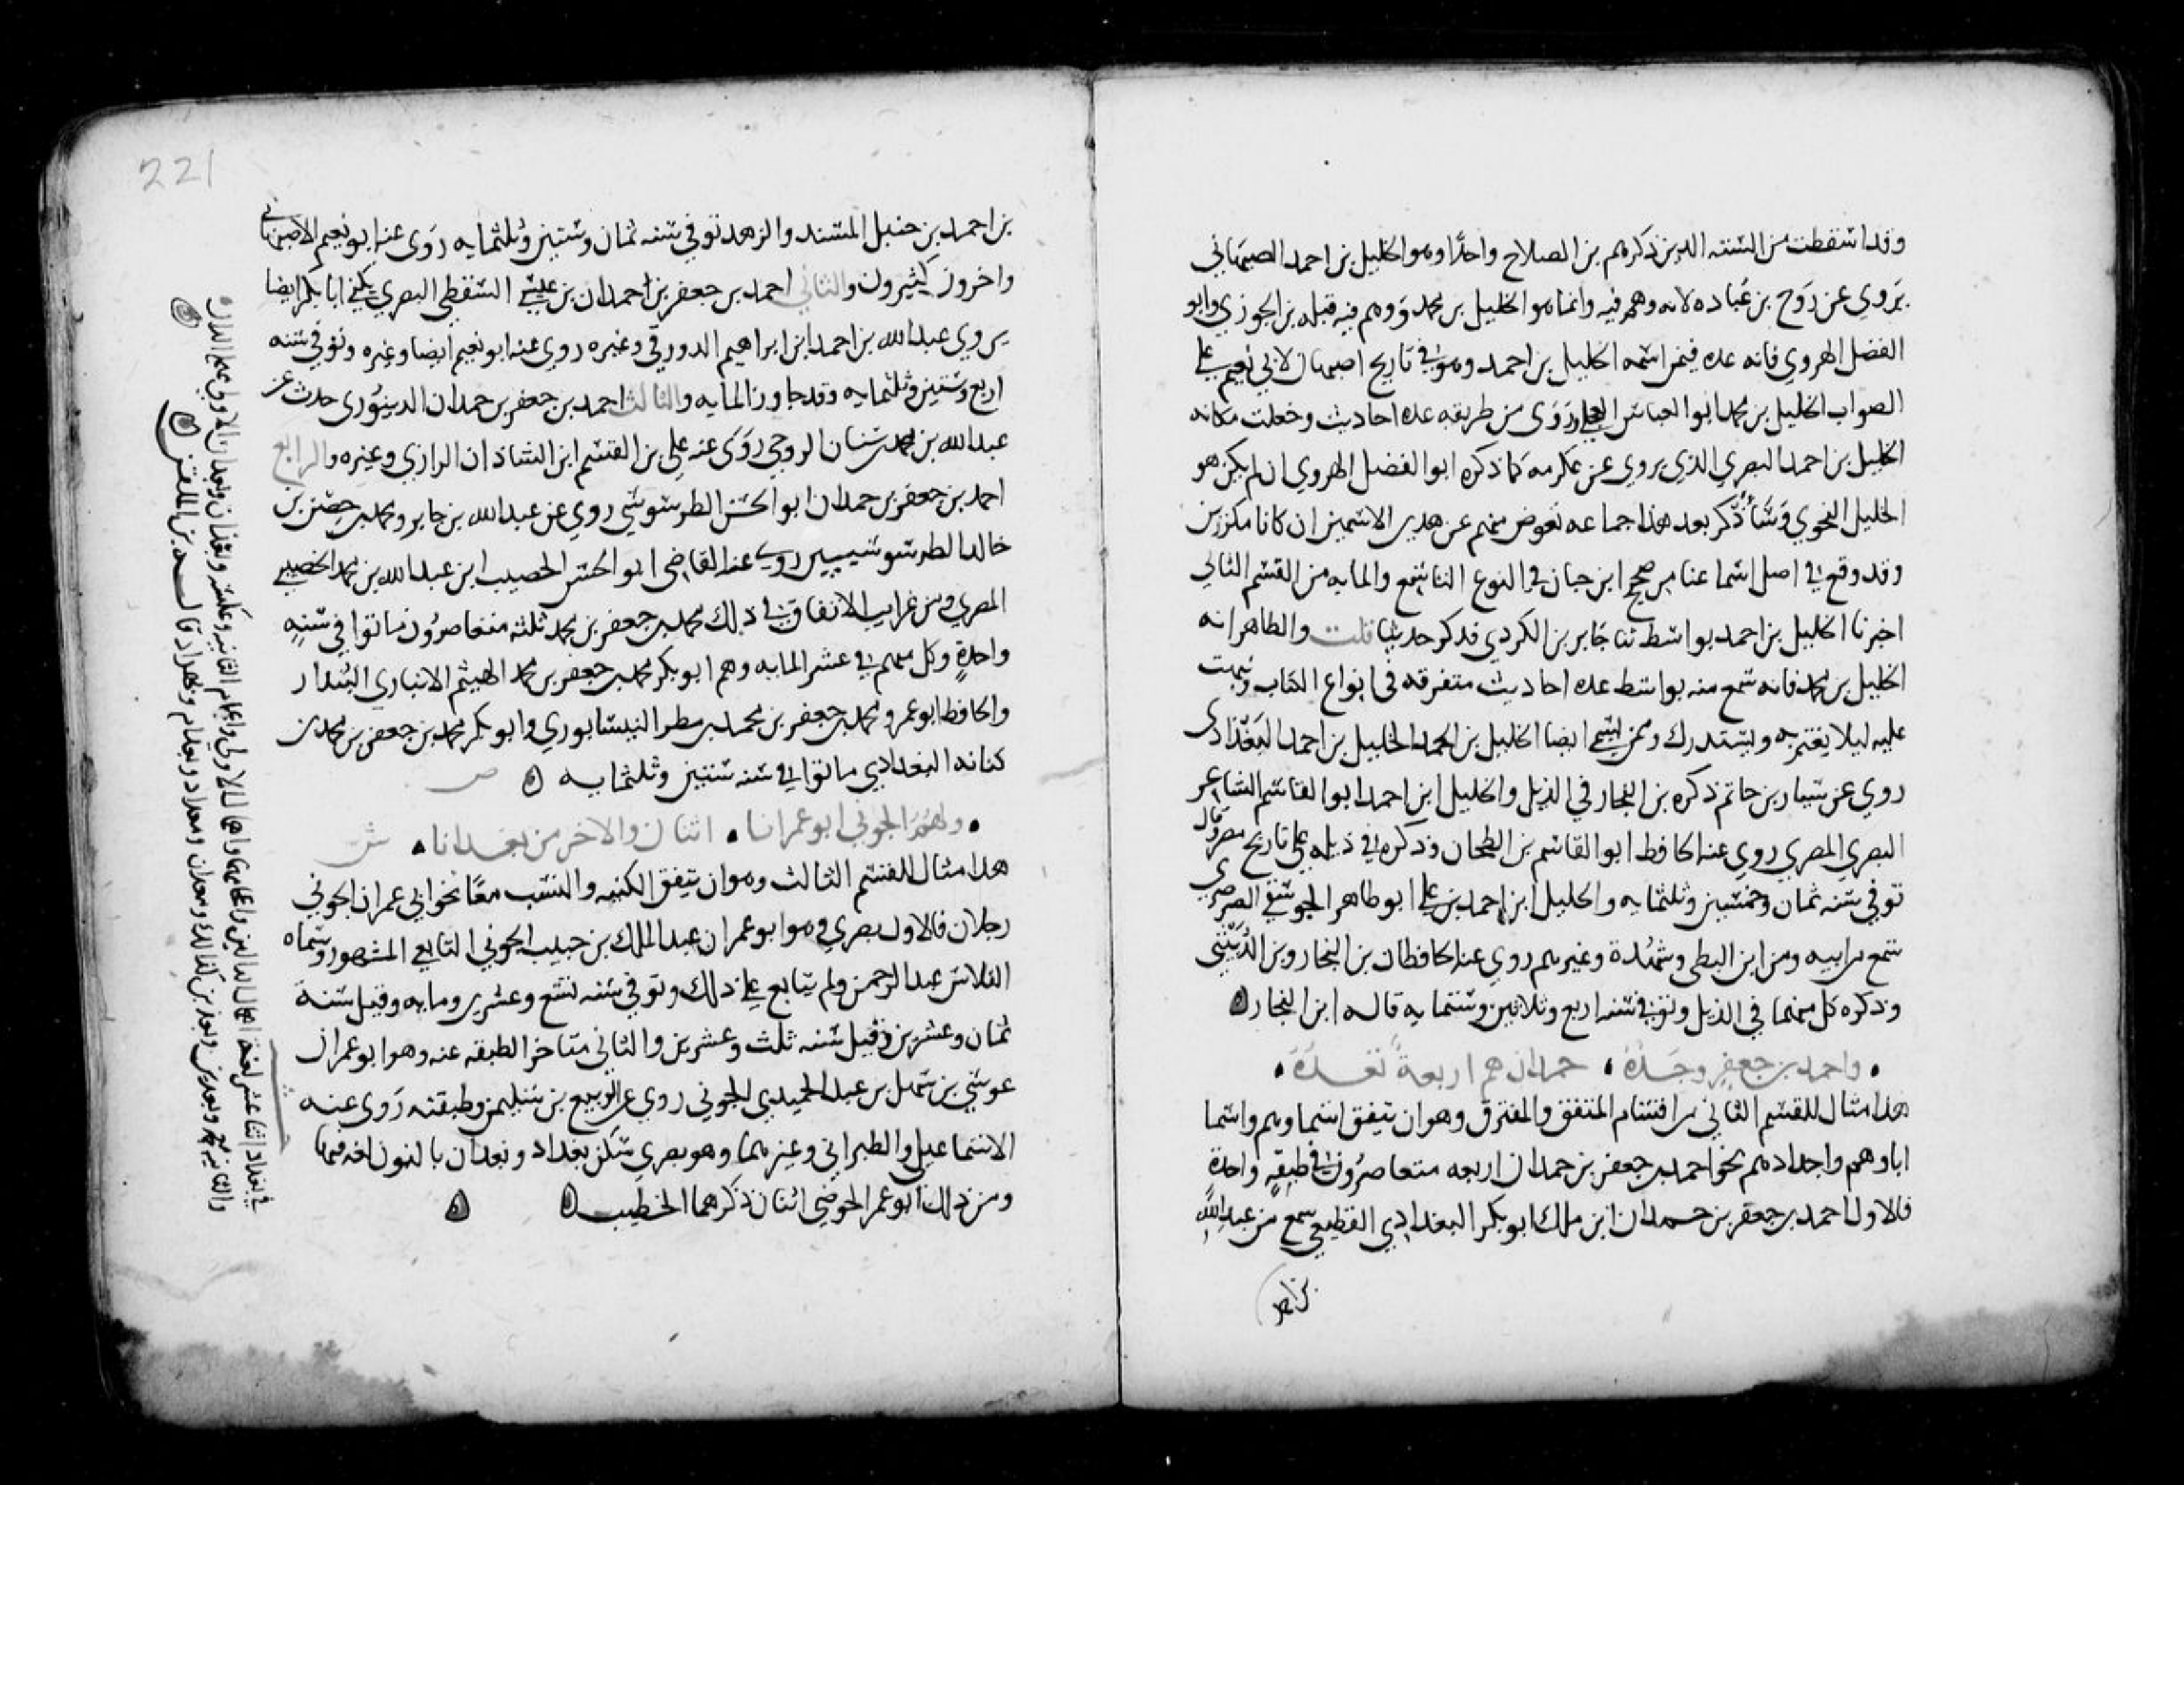 وقد اسقطت من السته الدين ذكرهم بن الصلاح واحدًا وهو الخليل بن احمد الاصبهاني
يروي عن رَوح بن عُباده لانه وهم فيه وانما هو الخليل بن محمد ووهم فيه قبله بن الجوزي وابو
الفضل الهروي فانه عده فيمن اسمه الخليل بن احمد وهو في تاريخ اصبهان لابي نعيم على
الصواب الخليل بن محمد ابو العباس العجلي ورَوَى من طريقه عده احاديث وجعلت مكانه
الخليل بن احمد البصري الذي يروي عن عكرمه كما ذكره ابو الفضل الهروي ان لم يكن هو
الخليل النحوي وسَأذكر بعد هذا جماعه تعوض منهم عن هدىن الاسمين ان كانا مكررين
وقد وقع في اصل سماعنا من صحيح ابن حبان في النوع التاسع والمايه من القسم الثاني
اخبرنا الخليل بن احمد بواسط ثنا جَابر بن الكردي فدكر حديثًا قلت والظاهر انه
الخليل بن محمد فانه سمع منه بواسط عده احاديث متفرقه في انواع الكتاب ونبهت
عليه ليلا يغتر به ويستدرك وممن يسمى ايضا الخليل بن احمد الخليل بن احمد البَغدَادى
روي عن سيار بن حاتم ذكره بن النجار في الذيل والخليل ابن احمد ابو القاسم الشاعر
البصري المصري روي عنه الحافظ ابو القاسم بن الطحان وذكره في ذيله على تاريخ مصر وقال
توفي سنه ثمان وخمسين وثلثمايه والخليل ابن احمد بن علي ابو طاهر الجوسقي الصرصرى
سمع من ابيه ومن ابن البطى وشُهدة وغيرهم روي عنه الحافظان بن النجار وبن الدُبَيثي
وذكره كل منهما في الذيل وتوفي سنه اربع وثلاثين وستمايه قاله ابن النجار ٥
• واحمد بن جعفرٍ وجَدّهُ • حمدان هم اربعةٌ تعُدّهُ •
هذا مثال للقسم الثاني من اقسام المتفق والمفترق وهو ان يتفق اسماوهم واسما
اباوهم واجدادهم نحو احمد بن جعفر بن حمدان اربعه متعاصرُون في طبقهٍ واحدةٍ
فالاول احمد بن جعفر بن حمدان ابن ملك ابو بكر البغدادي القطيعي سمع من عبد الله
بن احمد
221
بن احمد بن حنبل المسند والزهد توفي سنه ثمان وستين وثلثمايه رَوى عنه ابو نعيم الاصبهاني
واخرون كثيرون والثاني احمد بن جعفر بن احمدان بن عيسى السقطي البصري يكنى ابا بكر ايضا
يروي عبد الله بن احمد ابن ابراهيم الدورقي وغيره روي عنه ابو نعيم ايضا وغيره وتوفي سنه
اربع وستين وثلثمايه وقد جاوز المايه والثالث احمد بن جعفر بن حمدان الدينوَرى حدث عن
عبد الله بن محمد بن سنان الروحي رَوَى عنه علي بن القسم ابن الشاذان الرازي وغيره والرابع
احمد بن جعفر بن حمدان ابو الحسن الطرسوسي روي عن عبد الله بن جابر ومحمد بن حصن بن
خالد الطرسوسيين روى عنه القاضى ابو الحسن الخصيب ابن عبد الله بن محمد الخصيبي
المصري ومن غرايب الاتفاق في ذلك محمد بن جعفر بن محمد ثلثه متعاصرُون ماتوا في سَنهٍ
واحدةٍ وكل منهم في عشر المايه وهم ابو بكر محمد بن جعفر بن محمد الهيثم الانباري البُندار
والحافظ ابو عمرو محمد بن جعفر بن محمد بن مطر النيسابوري وابو بكر محمد بن جعفر بن محمد بن
كنانه البغدادي ماتوا في سنه ستين وثلثمايه ٥ ص
• ولهُمُ الجوني ابو عمرانا • اثنان والاخر من بغدانا • ش
هذا مثال للقسم الثالث وهو ان يتفق الكنيه والنسب معًا نحو ابي عمران الجوني
رجلان فالاول بصري وهو ابو عمران عبد الملك بن حبيب الجوني التابعي المشهور وسماه
الفلاس عبد الرحمن ولم يتابع على ذلك وتوفي سنه تسع وعشرين ومايه وقيل سنة
ثمان وعشرين وقيل سنه ثلث وعشرين والثاني متاخر الطبقه عنه وهو ابو عمران
موسي بن سهل بن عبد الحميدي الجوني روي عن الربيع بن سليمن وطبقته رَوى عنه
الاسماعيلي والطبراني وغيرهما وهو بصري سكن بغداد وبغدان بالنون لغه فيها
ومن ذلك ابو عمر الحوضي اثنان ذكرهما الخطيب ٥ ٥
في بغداد اثنا عشر لغة اهمال الدالين واعجامهما واهمال الاولي واعجام الثانيه وعكسه وبغدان